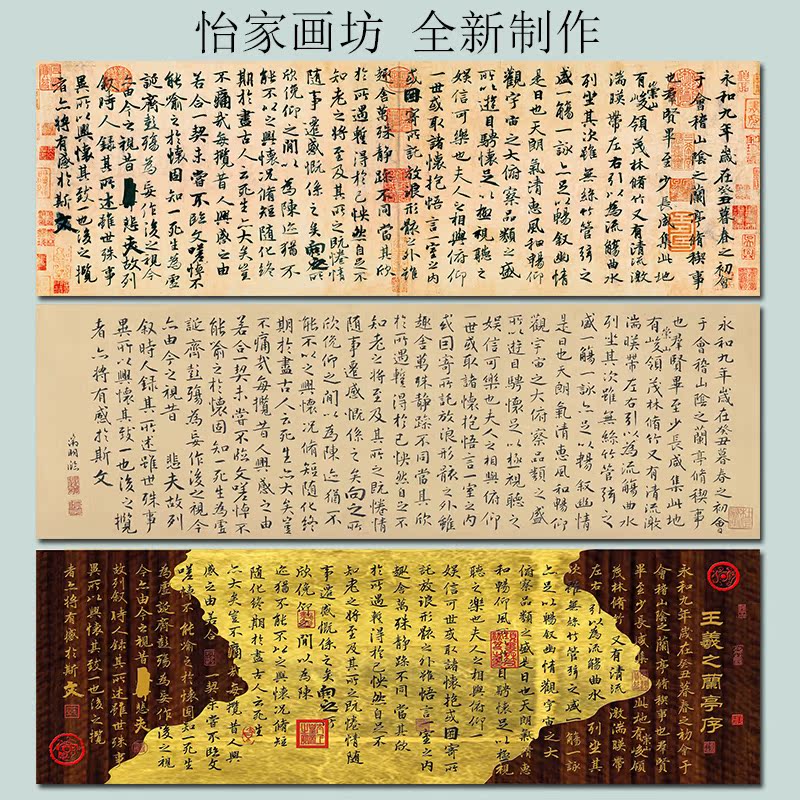 怡家画坊 全新制作
永和九年歲在癸丑暮春之初會
于會稽山陰之蘭亭脩稧事
也羣賢畢至少長咸集此地
有崇山峻領茂林脩竹又有清流激
湍暎帶左右引以為流觴曲水
列坐其次雖無絲竹管弦之
盛一觴一詠亦足以暢敘幽情
是日也天朗氣清惠風和暢仰
觀宇宙之大俯察品類之盛
所以遊目騁懷足以極視聽之
娛信可樂也夫人之相與俯仰
一世或取諸懷抱悟言一室之內
或因寄所託放浪形骸之外雖
趣舍萬殊靜躁不同當其欣
於所遇暫得於己怏然自足不
知老之將至及其所之既惓情
隨事遷感慨係之矣向之所
欣俛仰之閒以為陳迹猶不
能不以之興懷況脩短隨化終
期於盡古人云死生亦大矣豈
不痛哉每攬昔人興感之由
若合一契未嘗不臨文嗟悼不
能喻之於懷固知一死生為虛
誕齊彭殤為妄作後之視今
亦由今之視昔悲夫故列
敘時人錄其所述雖世殊事
異所以興懷其致一也後之攬
者亦將有感於斯文
永和九年歲在癸丑暮春之初會
于會稽山陰之蘭亭脩稧事
也羣賢畢至少長咸集此地
有崇山峻領茂林脩竹又有清流激
湍暎帶左右引以為流觴曲水
列坐其次雖無絲竹管弦之
盛一觴一詠亦足以暢敘幽情
是日也天朗氣清惠風和暢仰
觀宇宙之大俯察品類之盛
所以遊目騁懷足以極視聽之
娛信可樂也夫人之相與俯仰
一世或取諸懷抱悟言一室之內
或因寄所託放浪形骸之外雖
趣舍萬殊靜躁不同當其欣
於所遇暫得於己怏然自足不
知老之將至及其所之既惓情
隨事遷感慨係之矣向之所
欣俛仰之閒以為陳迹猶不
能不以之興懷況脩短隨化終
期於盡古人云死生亦大矣豈
不痛哉每攬昔人興感之由
若合一契未嘗不臨文嗟悼不
能喻之於懷固知一死生為虛
誕齊彭殤為妄作後之視今
亦由今之視昔悲夫故列
敘時人錄其所述雖世殊事
異所以興懷其致一也後之攬
者亦將有感於斯文
王羲之蘭亭序
永和九年歲在癸丑暮春之初會于
會稽山陰之蘭亭脩稧事也羣賢
畢至少長咸集此地有崇山峻領
茂林脩竹又有清流激湍暎帶
左右引以為流觴曲水列坐其
次雖無絲竹管弦之盛一觴一詠
亦足以暢敘幽情觀宇宙之大
俯察品類之盛是日也天朗氣清惠風
和暢仰騁懷足以極視
聽之樂也夫人之相與俯仰一
娛信可世或取諸懷抱或因寄所
託放浪形骸之外雖悟言一室之內
趣舍萬殊靜躁不同當其欣
於所遇暫得於己怏然自足不
知老之將至及其所之既惓情隨
事遷感慨係之矣向之所
欣俛仰閒以為陳
迹猶不能不以之興懷況脩短
隨化終期於盡古人云死生
亦大矣豈不痛哉每攬昔人興
感之由若合一契未嘗不臨文
嗟悼不能喻之於懷固知一死生
為虛誕齊彭殤為妄作後之視
今亦由今之視昔悲夫
故列敘時人錄其所述雖世殊事
異所以興懷其致一也後之攬
者亦將有感於斯文